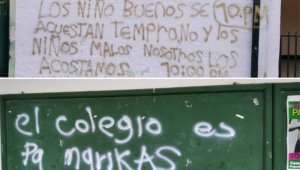 LOS NIÑO BUENOS SE 10.PM
ACUESTAN TEMPRANO Y LOS
NIÑOS MALOS NOSOTROS LOS
ACOSTAMOS 10:00 PM
el colegio es
Pa MARIKAS